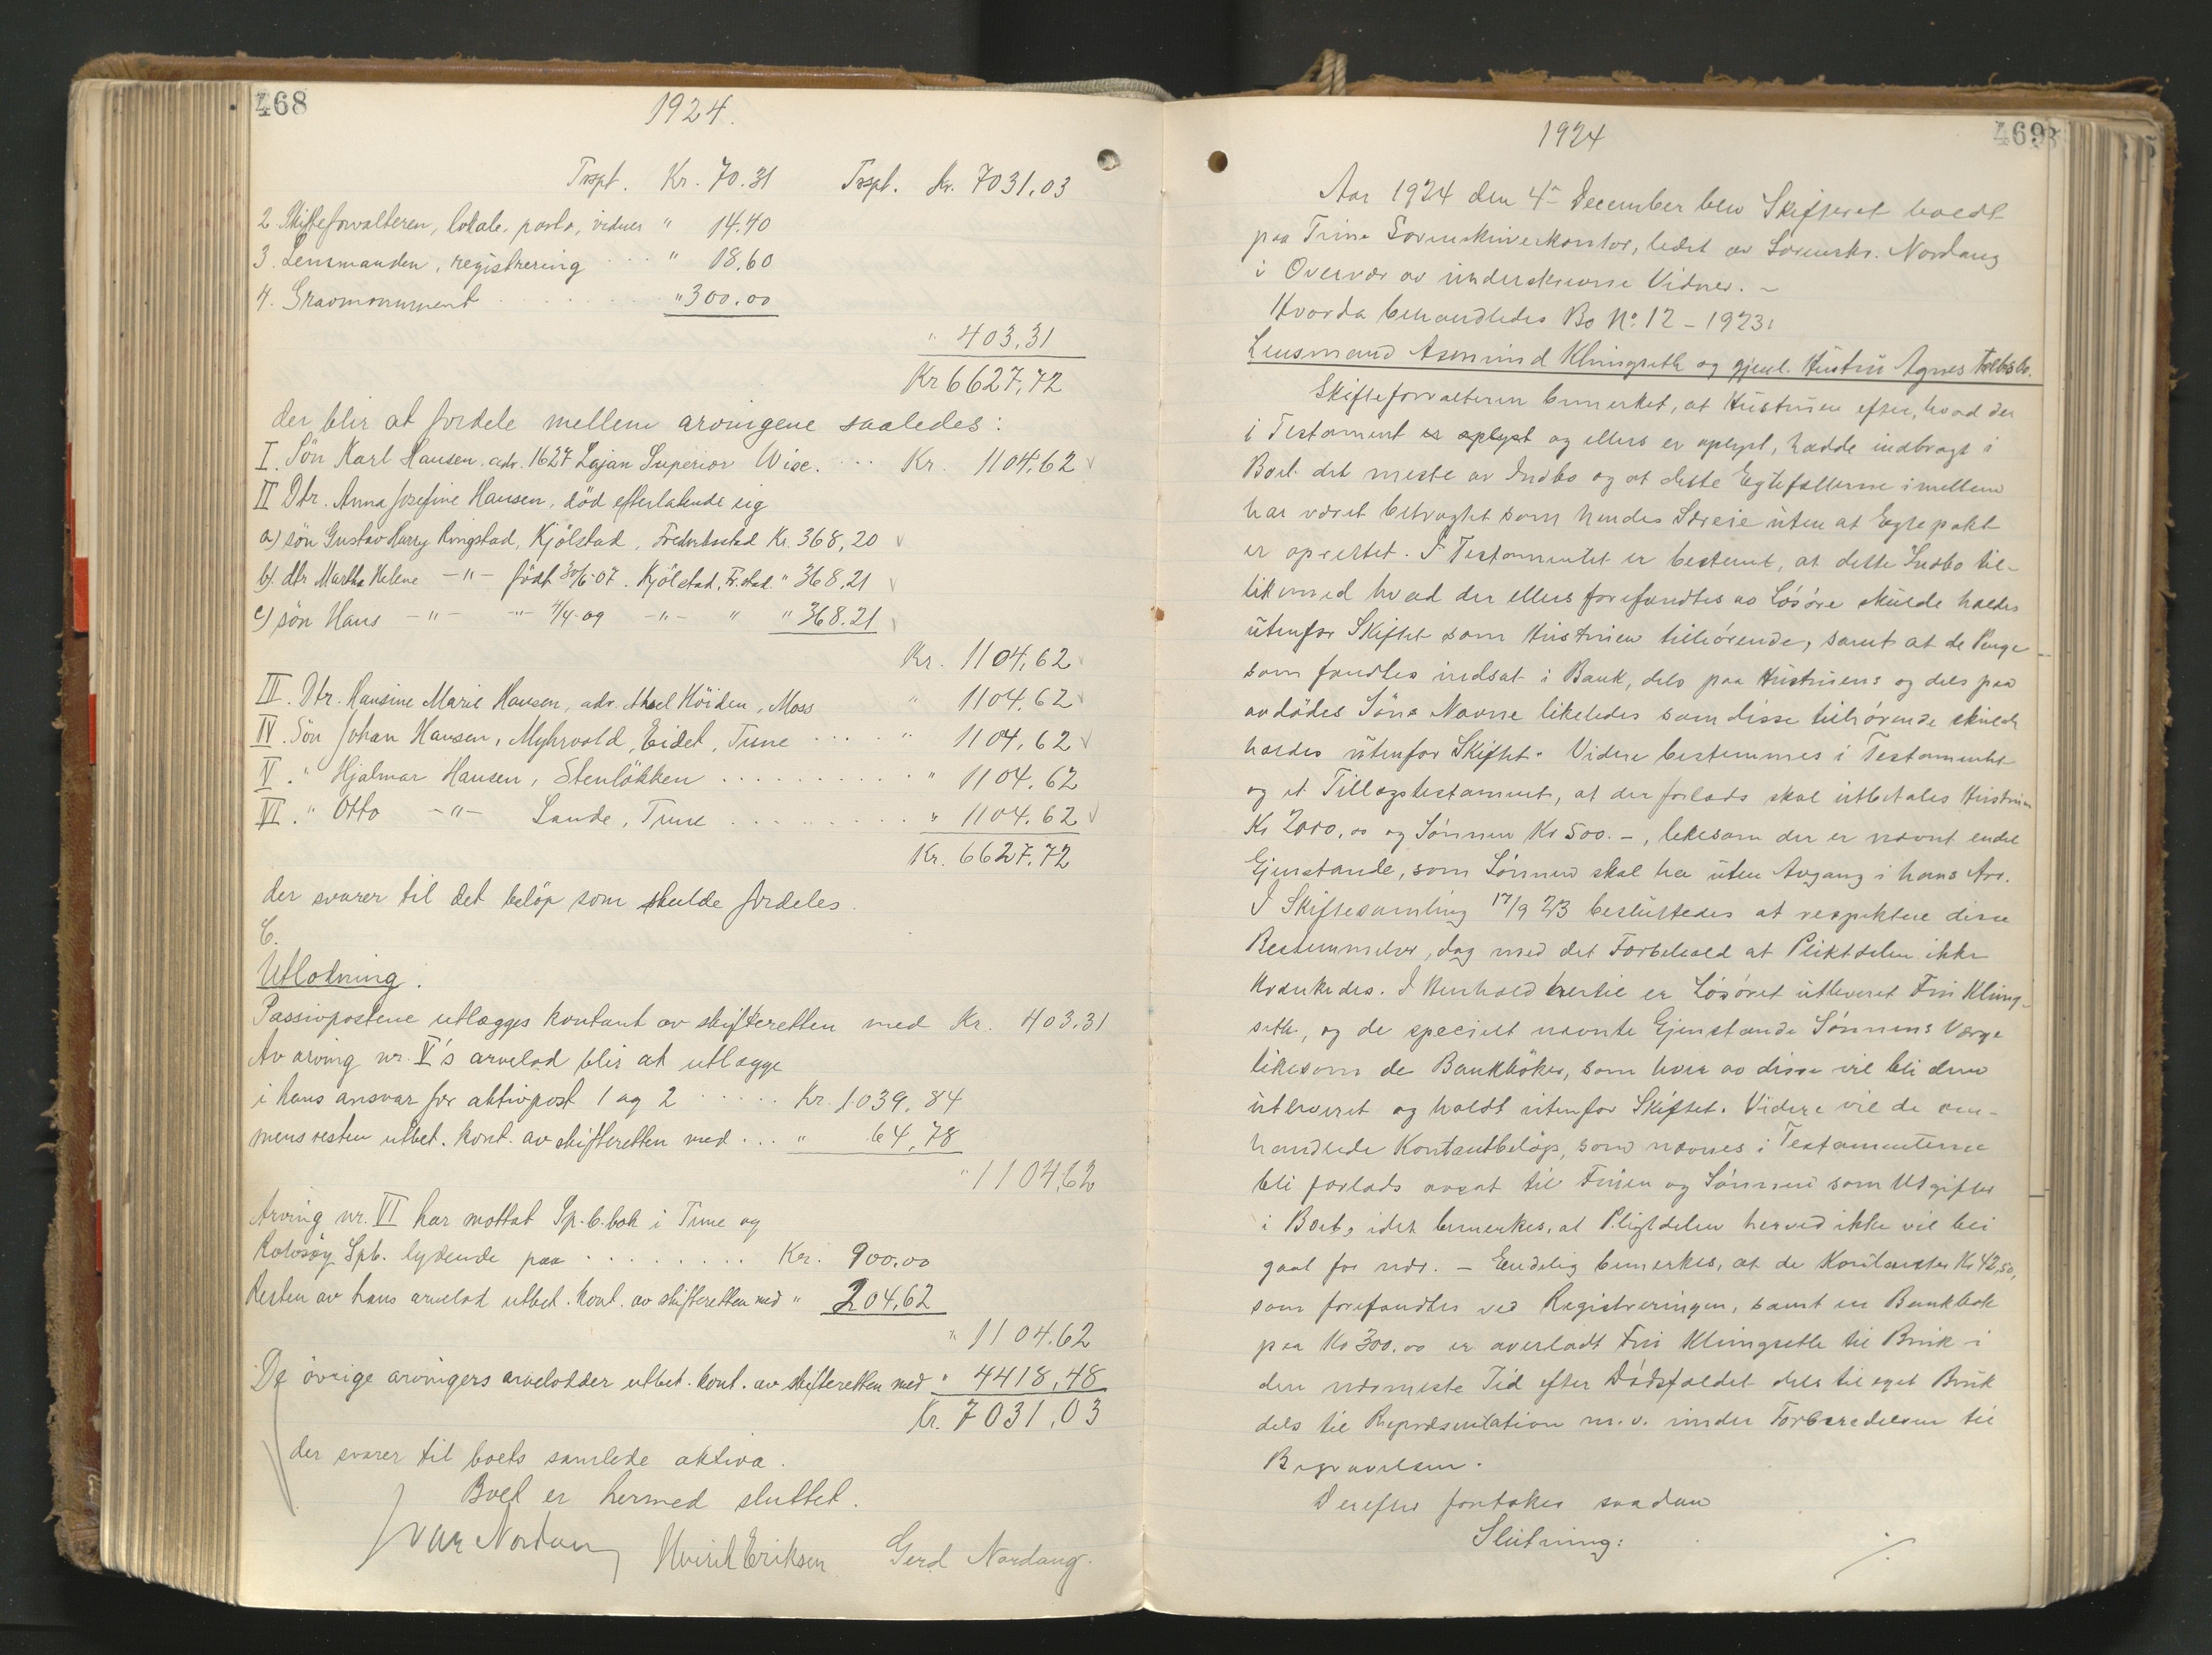 468
1924.
Trspt. Kr. 70.31 Trspt. Kr. 7031.03
2. Skifteforvalteren, lokale, porto, vidner " 14.40
3. Lensmanden, registrering . . . " 18.60
4. Gravmonument . . . . . . . " 300.00
" 403.31
Kr 6627.72
der blir at fordele mellem arvingene saaledes:
I. Sön Karl Hansen. adr. 1627 Superior Wise. . . . Kr. 1104.62
II Dtr. Anna Josefine Hansen, död efterlatende sig
a) sön Gustav Harry Ringstad, Kjölstad, Fredrikstad Kr. 368,20
b). dtr Martha Helene -"- födt 30/6-07. Kjölstad, Fr.stad. " 368,21
c) sön Hans -"- -"- 4/4-09 -"- " " 368.21
Kr. 1104,62
III. Dtr. Hansine Marie Hansen, adr. Höiden, Moss " 1104.62
IV. Sön Johan Hansen, Myhrvold, Eidet, Tune . . . . " 1104.62
V. " Hjalmar Hansen, Stenlökken . . . . . . . . . . " 1104.62
VI. " Otto -"- Sande, Tune . . . . . . . . . " 1104.62
Kr. 6627.72
der svarer til det belöp som skulde fordeles.
C.
Utlodning.
Passivpostene utlægges kontant av skifteretten med Kr. 403.31
Av arving nr. V's arvelod blir at utlægge
i hans ansvar for aktivpost 1 og 2 . . . . . Kr. 1039.84
mens resten utbet. kont. av skifteretten med . . . " 64,78
" 1104,62
Arving nr. VI har mottat Sp.b.bok i Tune og
Rolvsöy Spb. lydende paa . . . . . . . . Kr. 900.00
Resten av hans arvelod utbet. kont. av skifteretten med " 204,62
" 1104.62
De övrige arvingers arvelodder utbet. kont. av skifteretten med " 4418,48
Kr. 7031,03
der svarer til boets samlede aktiva.
Boet er hermed sluttet.
Ivar Nordang Eriksen Gerd Nordang.
469
1924
Aar 1924 den 4- December blev Skifteret holdt
paa Tune Sorenskriverkontor, ledet av Sorenskr. Nordang
i Overvær av underskrevne Vidner. -
Hvorda behandledes Bo No: 12 - 1923:
Lensmand Asmund Klungseth og gjenl. Hustru Agnes
Skifteforvalteren bemerket, at Hustruen efter, hvad der
i Testament er oplyst og ellers er oplyst, hadde indbragt i
Boet det meste av Indbo og at dette Egtefællerne imellem
har været betragtet som hendes Særeie uten at Egtepakt
er oprettet. I Testamentet er bestemt, at dette Indbo til-
likemed hvad der ellers forefandtes av Lösöre skulde holdes
utenfor Skiftet som Hustruen tilhörende, samt at de Penge
som fandtes indsat i Bank, dels paa Hustruens og dels paa
avdödes Söns Navne likeledes som disse tilhörende skulde
holdes utenfor Skiftet. Videre bestemmes i Testamentet
og et Tillægstestament, at der forlods skal utbetales Hustruen
Kr 2000,00 og Sönnen Kr 500.-, likesom der er nævnt endel
Gjenstande, som Sönnen skal ha uten Avgang i hans Arv.
I Skiftesamling 17/9 23 besluttedes at respektere disse
Bestemmelser, dog med det Forbehold at Pliktdelen ikke
krænkedes. I Henhold hertil er Lösöret utleveret Fru Klung-
seth, og de specielt nævnte Gjenstande Sönnens Værge
likesom de Bankböker, som hver av disse vil bli dem
utleveret og holdt utenfor Skiftet. Videre vil de om-
handlede Kontantbelöp, som nævnes i Testamenterne
bli forlods avsat til Fruen og Sönnen som Utgifter
i Boet, idet bemerkes, at Pligtdelen herved ikke vil bli
gaat for nær. - Endelig bemerkes, at de Kontanter Kr 42,50,
som forefandtes ved Registreringen, samt en Bankbok
paa Kr 300.00 er overladt Fru Klungseth til Bruk i
den nærmeste Tid efter Dödsfaldet dels til eget Bruk
dels til Repræsentation m.v. under Forberedelsen til
Begravelsen.
Derefter foretokes saadan
Slutning: